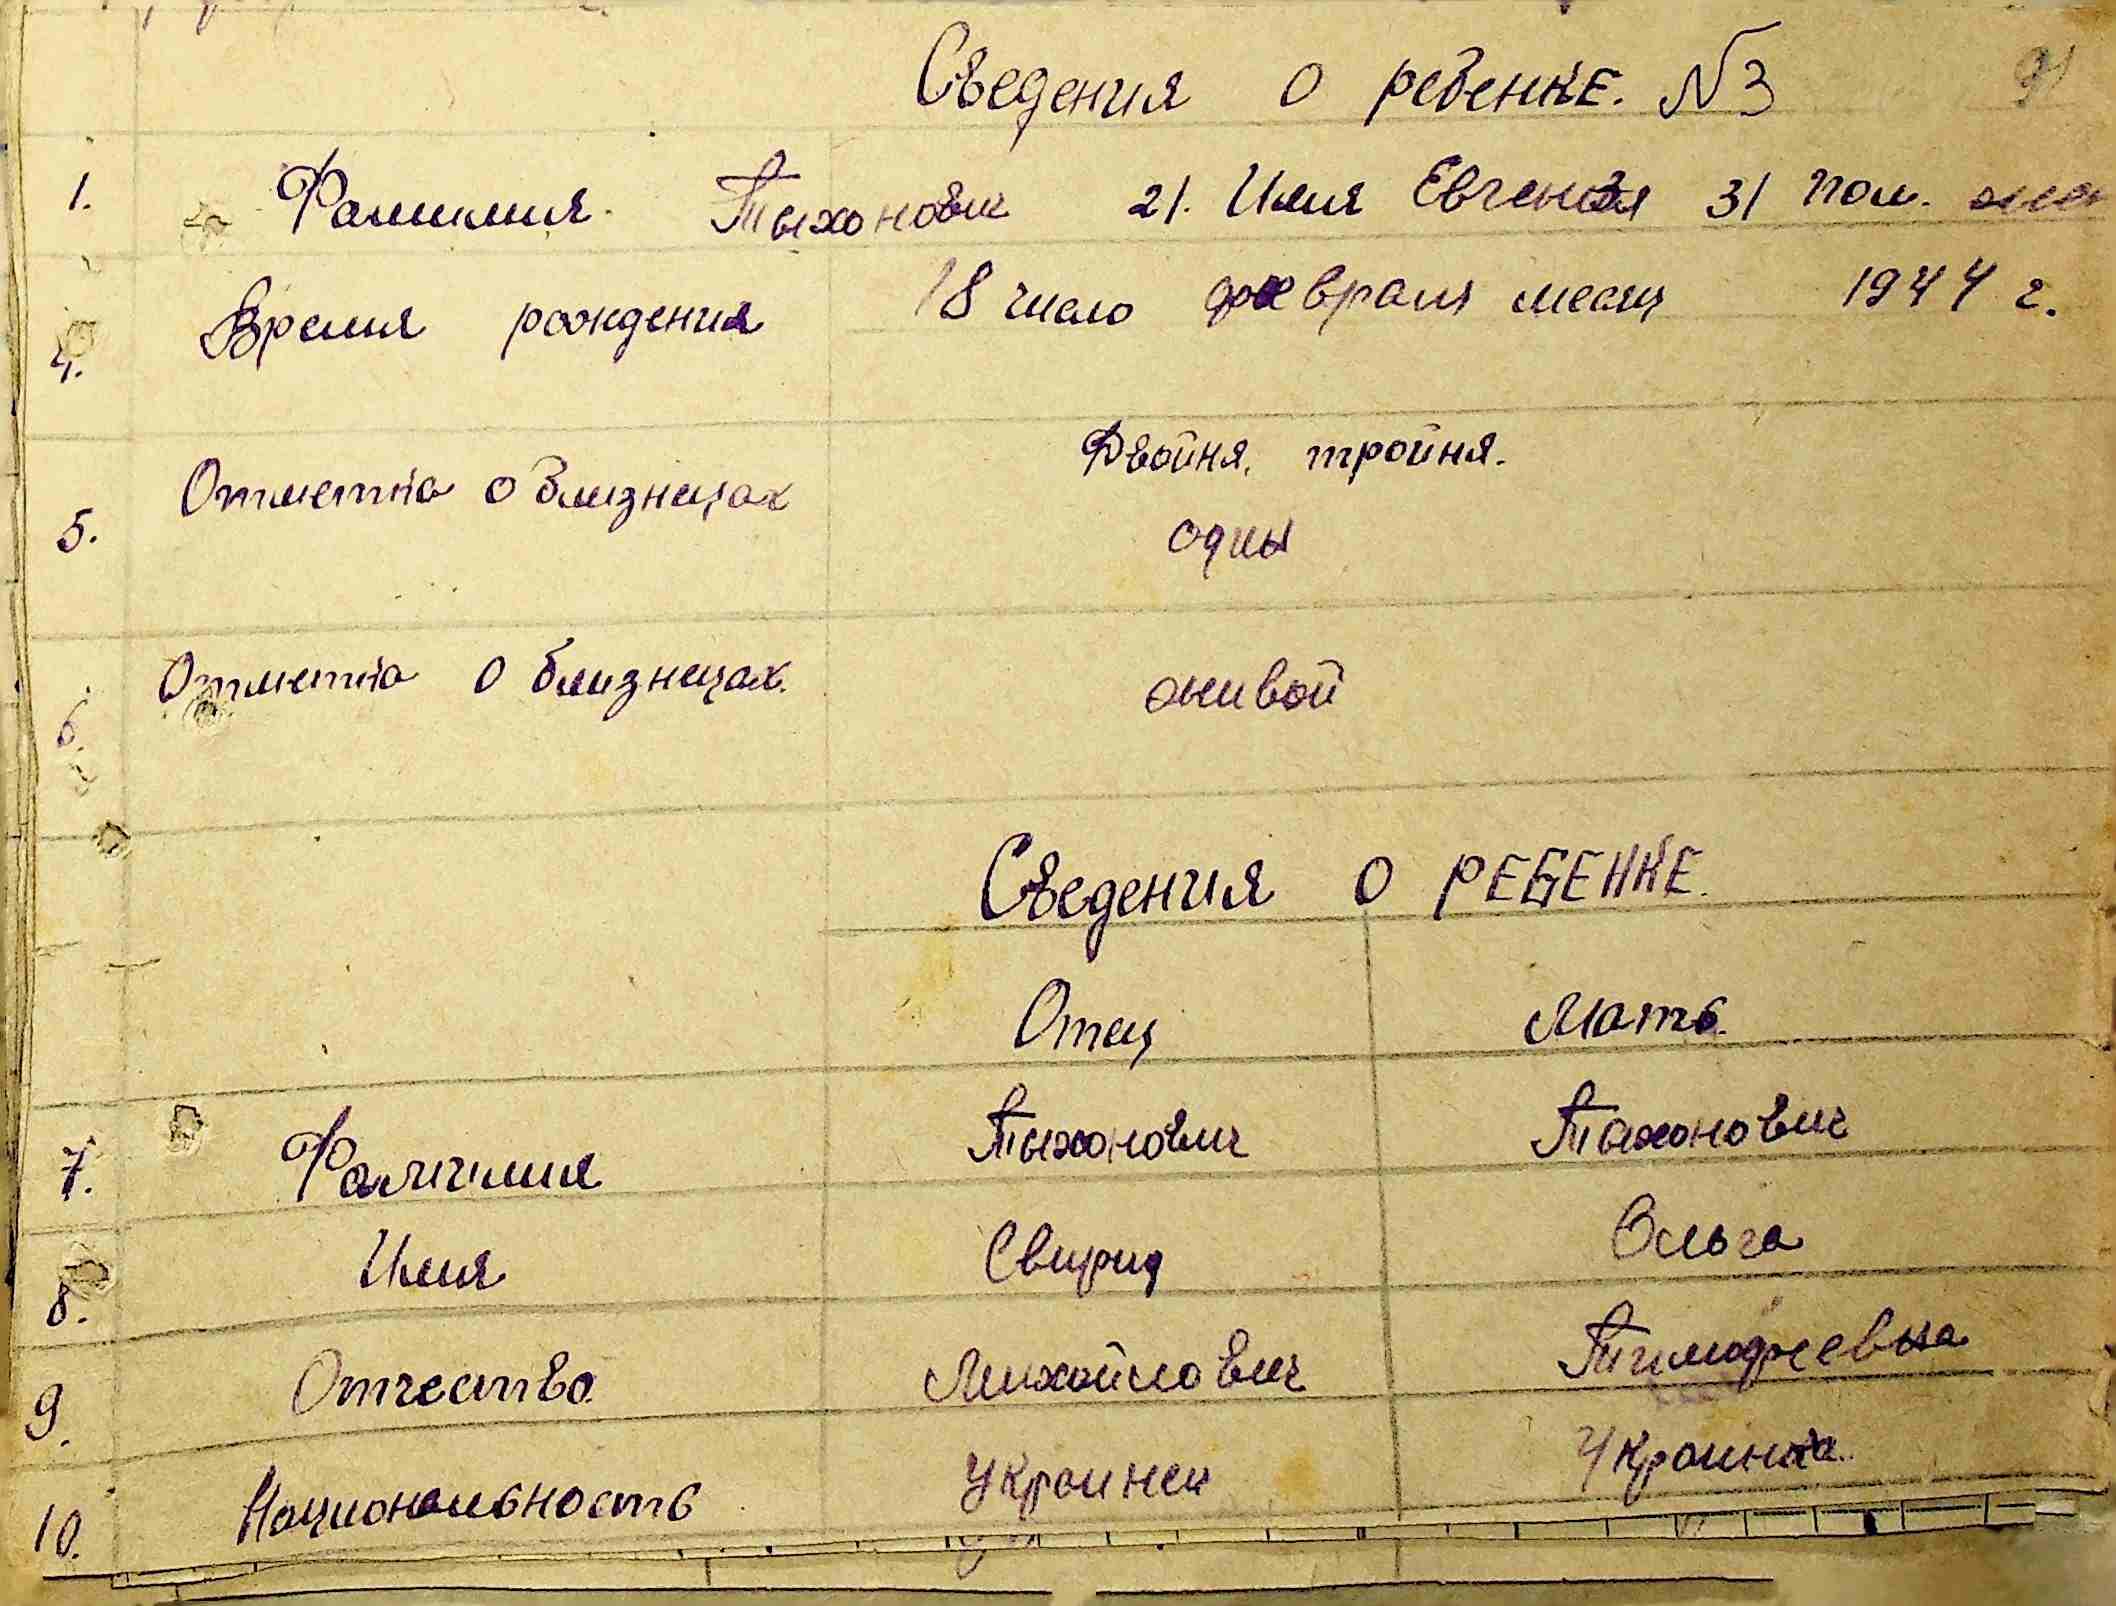 Сведения о ребенке. №3
1. Фамилия. Тыхонович 2/. Имя Евгения 3/ пол. жен
4. Время рождения 18 число февраля месяц 1944 г.
Двойня, тройня.
5. Отметка о близнецах
одны
6. Отметка о близнецах. живой
Сведения о РЕБЕНКЕ.
Отец Мать.
7. Фамилия Тыхонович Тыхонович
8. Имя Свирид Ольга
9. Отчество Михайлович Тимофеевна
10. Национальность Украинец Украинка.